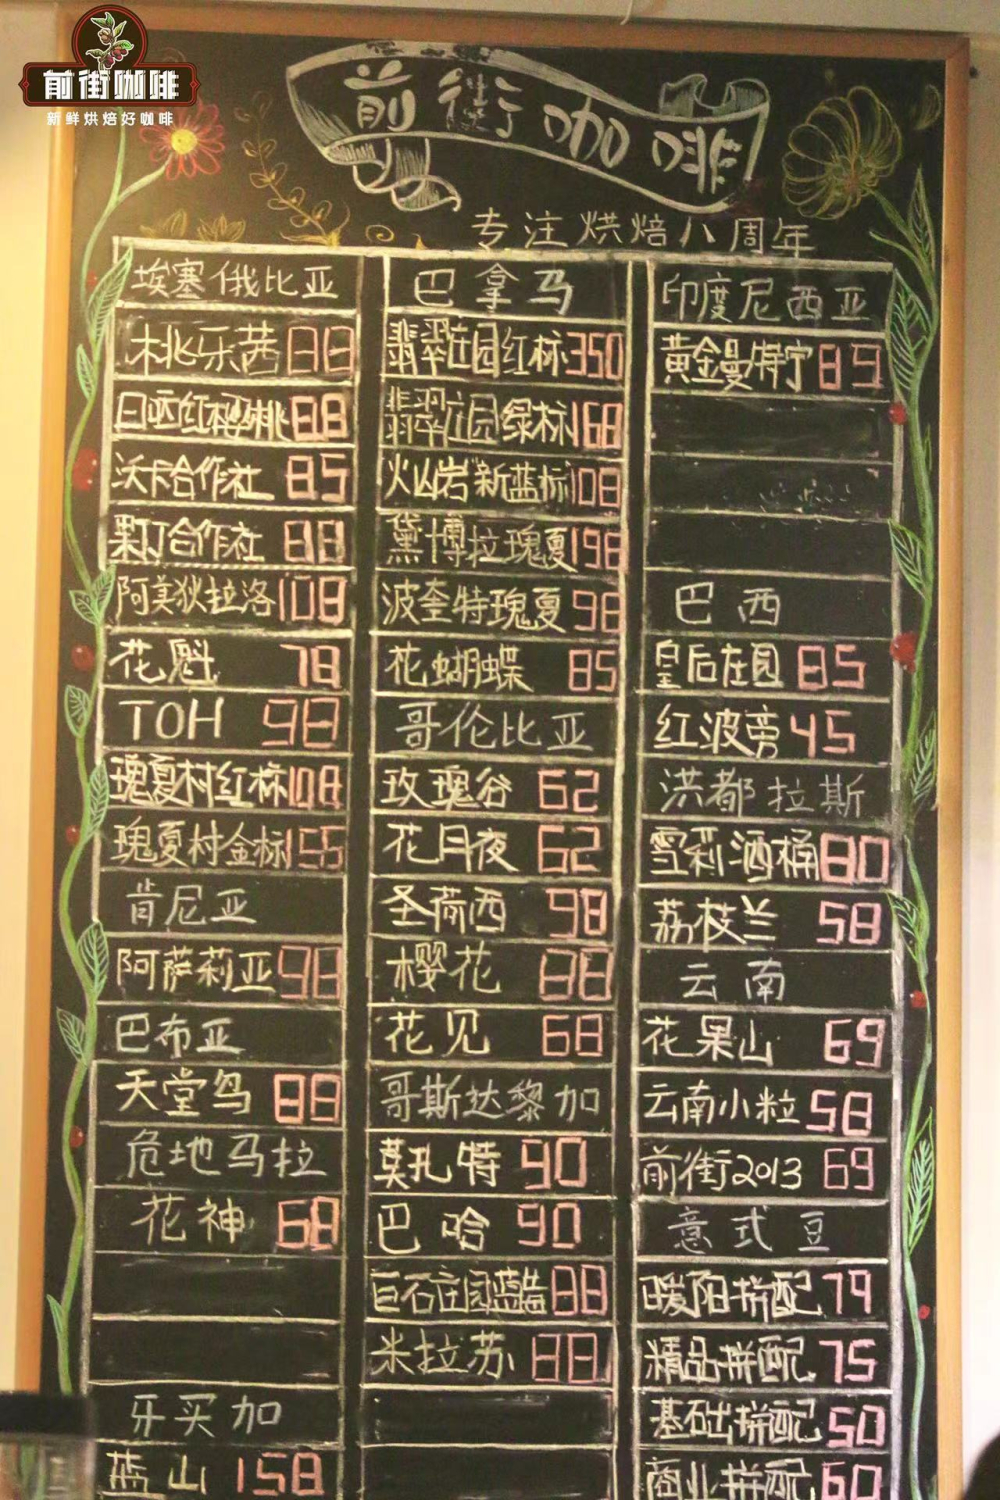 前街咖啡
新鲜烘焙好咖啡
前街咖啡
专注烘焙八周年
埃塞俄比亚
桃乐茜 88
日晒红樱桃 88
沃卡合作社 85
果丁合作社 88
阿美狄拉洛 108
花魁 78
TOH 98
瑰夏村红标 108
瑰夏村金标 155
肯尼亚
阿萨莉亚 98
巴布亚
天堂鸟 88
危地马拉
花神 68
牙买加
蓝山 158
巴拿马
翡翠庄园红标 350
翡翠庄园绿标 168
火山岩新蓝标 108
黛博拉瑰夏 198
波奎特瑰夏 98
花蝴蝶 85
哥伦比亚
玫瑰谷 62
花月夜 62
圣荷西 98
樱花 88
花见 68
哥斯达黎加
莫扎特 90
巴哈 90
巨石庄园蓝 88
米拉苏 88
印度尼西亚
黄金曼特宁 85
巴西
皇后庄园 85
红波旁 45
洪都拉斯
雪莉酒桶 80
荔枝兰 58
云南
花果山 69
云南小粒 58
前街2013 69
意式豆
暖阳拼配 79
精品拼配 75
基础拼配 50
商业拼配 60